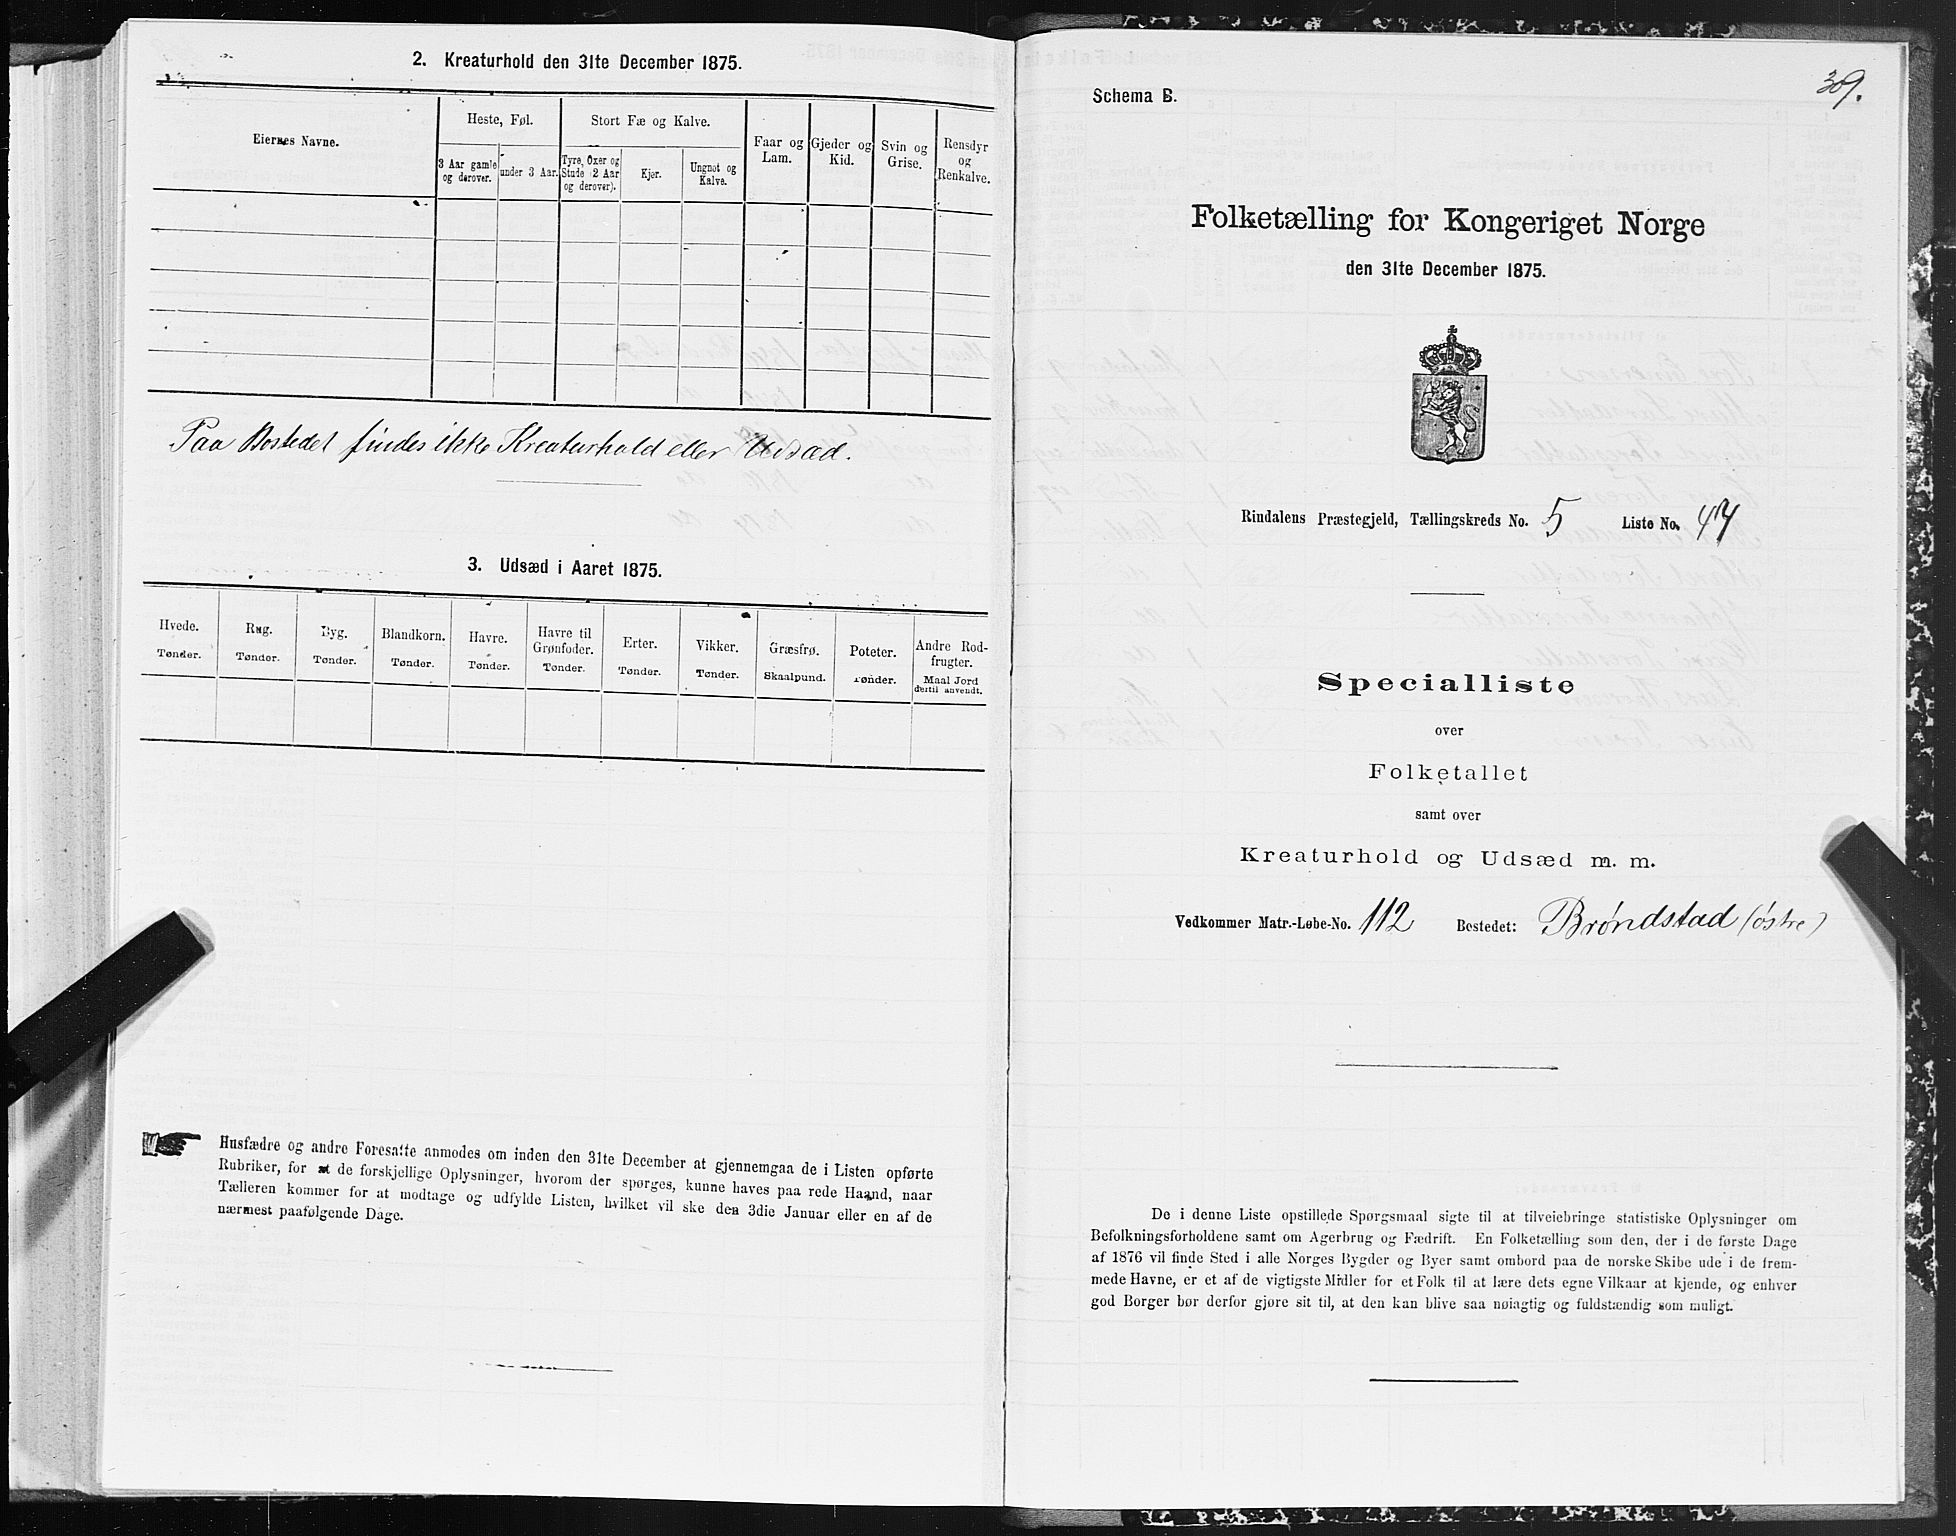 2. Kreaturhold den 31te December 1875.
Eiernes Navne.
Heste, Føl.
Stort Fæ og Kalve.
Faar og Lam.
Gjeder og Kid.
Svin og Grise.
Rensdyr og Renkalve.
3 Aar gamle og derover.
under 3 Aar.
Tyre, Oxer og Stude (2 Aar og derover).
Kjør.
Ungnøt og Kalve.
Paa Bostedet findes ikke Kreaturhold eller Udsæd.
3. Udsæd i Aaret 1875.
Hvede. Tønder.
Rug. Tønder.
Byg. Tønder.
Blandkorn. Tønder.
Havre. Tønder.
Havre til Grønfoder. Tønder.
Erter. Tønder.
Vikker. Tønder.
Græsfrø. Skaalpund.
Poteter. Tønder.
Andre Rodfrugter. Maal Jord dertil anvendt.
Husfædre og andre Foresatte anmodes om inden den 31te December at gjennemgaa de i Listen opførte
Rubriker, for at de forskjellige Oplysninger, hvorom der spørges, kunne haves paa rede Haand, naar
Tælleren kommer for at modtage og udfylde Listen, hvilket vil ske den 3die Januar eller en af de
nærmest paafølgende Dage.
309.
Schema B.
Folketælling for Kongeriget Norge
den 31te December 1875.
Rindalens Præstegjeld, Tællingskreds No. 5 Liste No. 47
Specialliste
over
Folketallet
samt over
Kreaturhold og Udsæd m. m.
Vedkommer Matr.-Løbe-No. 112 Bostedet: Brøndstad (østre)
De i denne Liste opstillede Spørgsmaal sigte til at tilveiebringe statistiske Oplysninger om
Befolkningsforholdene samt om Agerbrug og Fædrift. En Folketælling som den, der i de første Dage
af 1876 vil finde Sted i alle Norges Bygder og Byer samt ombord paa de norske Skibe ude i de frem-
mede Havne, er et af de vigtigste Midler for et Folk til at lære dets egne Vilkaar at kjende, og enhver
god Borger bør derfor gjøre sit til, at den kan blive saa nøiagtig og fuldstændig som muligt.